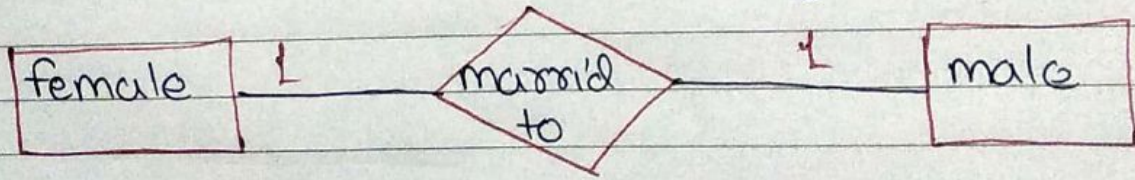 female
1
marrid
to
1
male